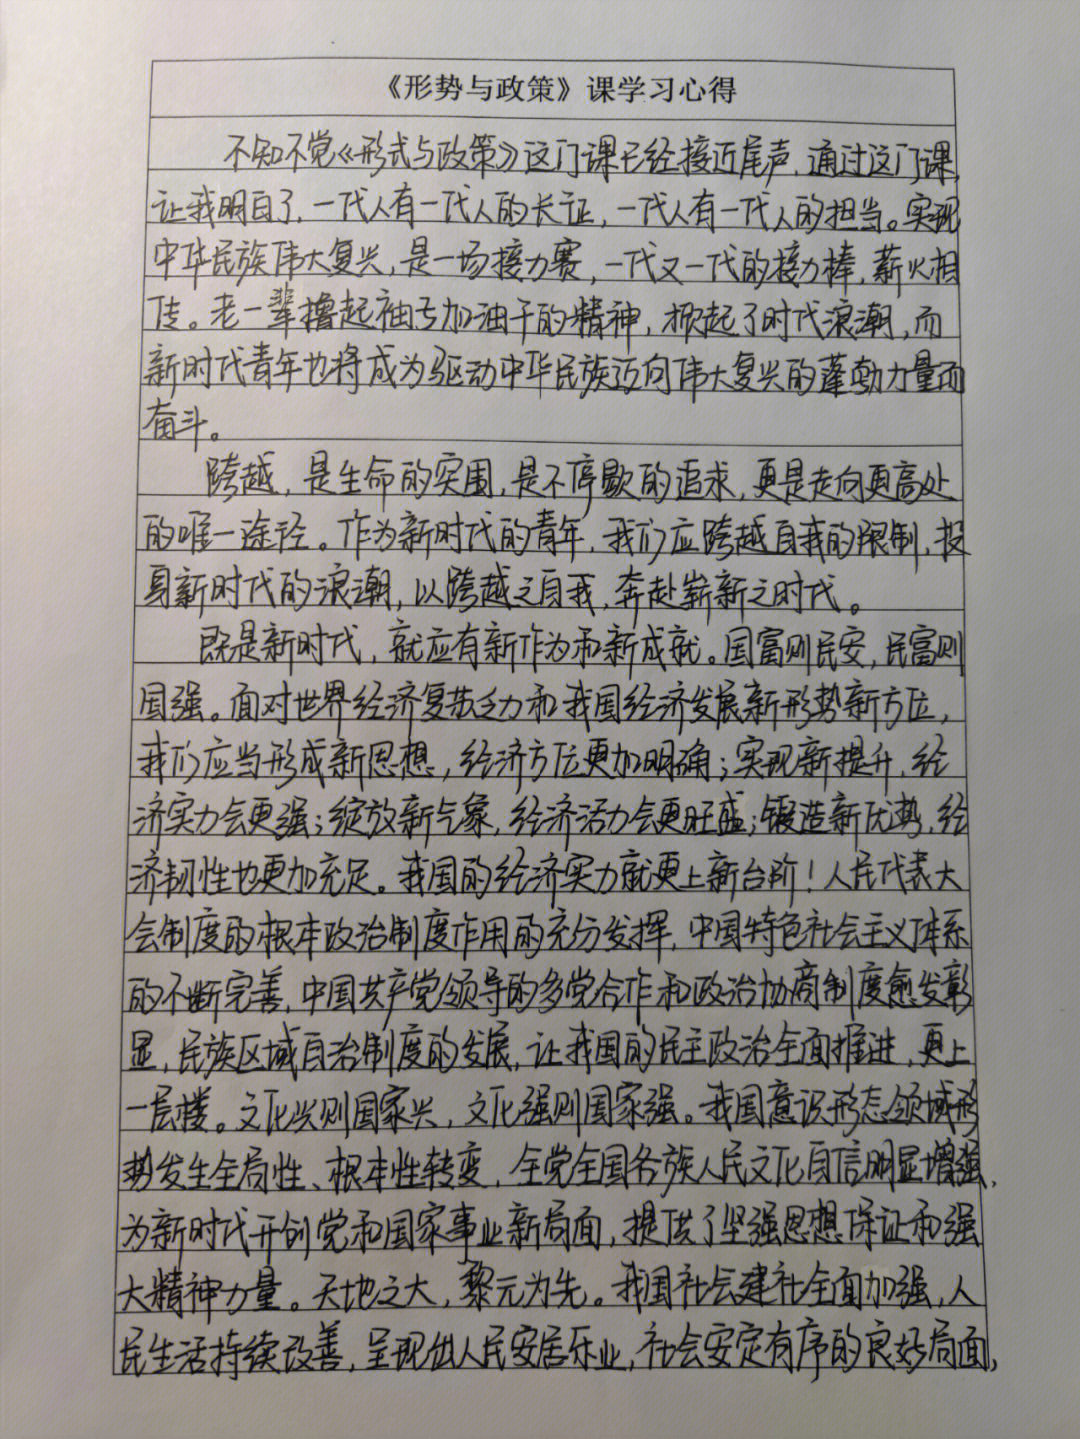 《形势与政策》课学习心得
不知不觉《形式与政策》这门课已经接近尾声，通过这门课，
让我明白了，一代人有一代人的长征，一代人有一代人的担当。实现
中华民族伟大复兴，是一场接力赛，一代又一代的接力棒，薪火相
传。老一辈撸起袖子加油干的精神，掀起了时代浪潮，而
新时代青年也将成为驱动中华民族迈向伟大复兴的蓬勃力量而
奋斗。
跨越，是生命的突围，是不停歇的追求，更是走向更高处
的唯一途径。作为新时代的青年，我们应跨越自我的限制，投
身新时代的浪潮，以跨越之自我，奔赴崭新之时代。
既是新时代，就应有新作为和新成就。国富则民安，民富则
国强。面对世界经济复苏乏力和我国经济发展新形势新方位，
我们应当形成新思想，经济方位更加明确；实现新提升，经
济实力会更强；绽放新气象，经济活力会更旺盛；锻造新优势，经
济韧性也更加充足。我国的经济实力就更上新台阶！人民代表大
会制度的根本政治制度作用的充分发挥，中国特色社会主义体系
的不断完善，中国共产党领导的多党合作和政治协商制度愈发彰
显，民族区域自治制度的发展，让我国的民主政治全面推进，更上
一层楼。文化兴则国家兴，文化强则国家强。我国意识形态领域形
势发生全局性、根本性转变，全党全国各族人民文化自信明显增强，
为新时代开创党和国家事业新局面，提供了坚强思想保证和强
大精神力量。天地之大，黎元为先。我国社会建社全面加强，人
民生活持续改善，呈现出人民安居乐业，社会安定有序的良好局面，